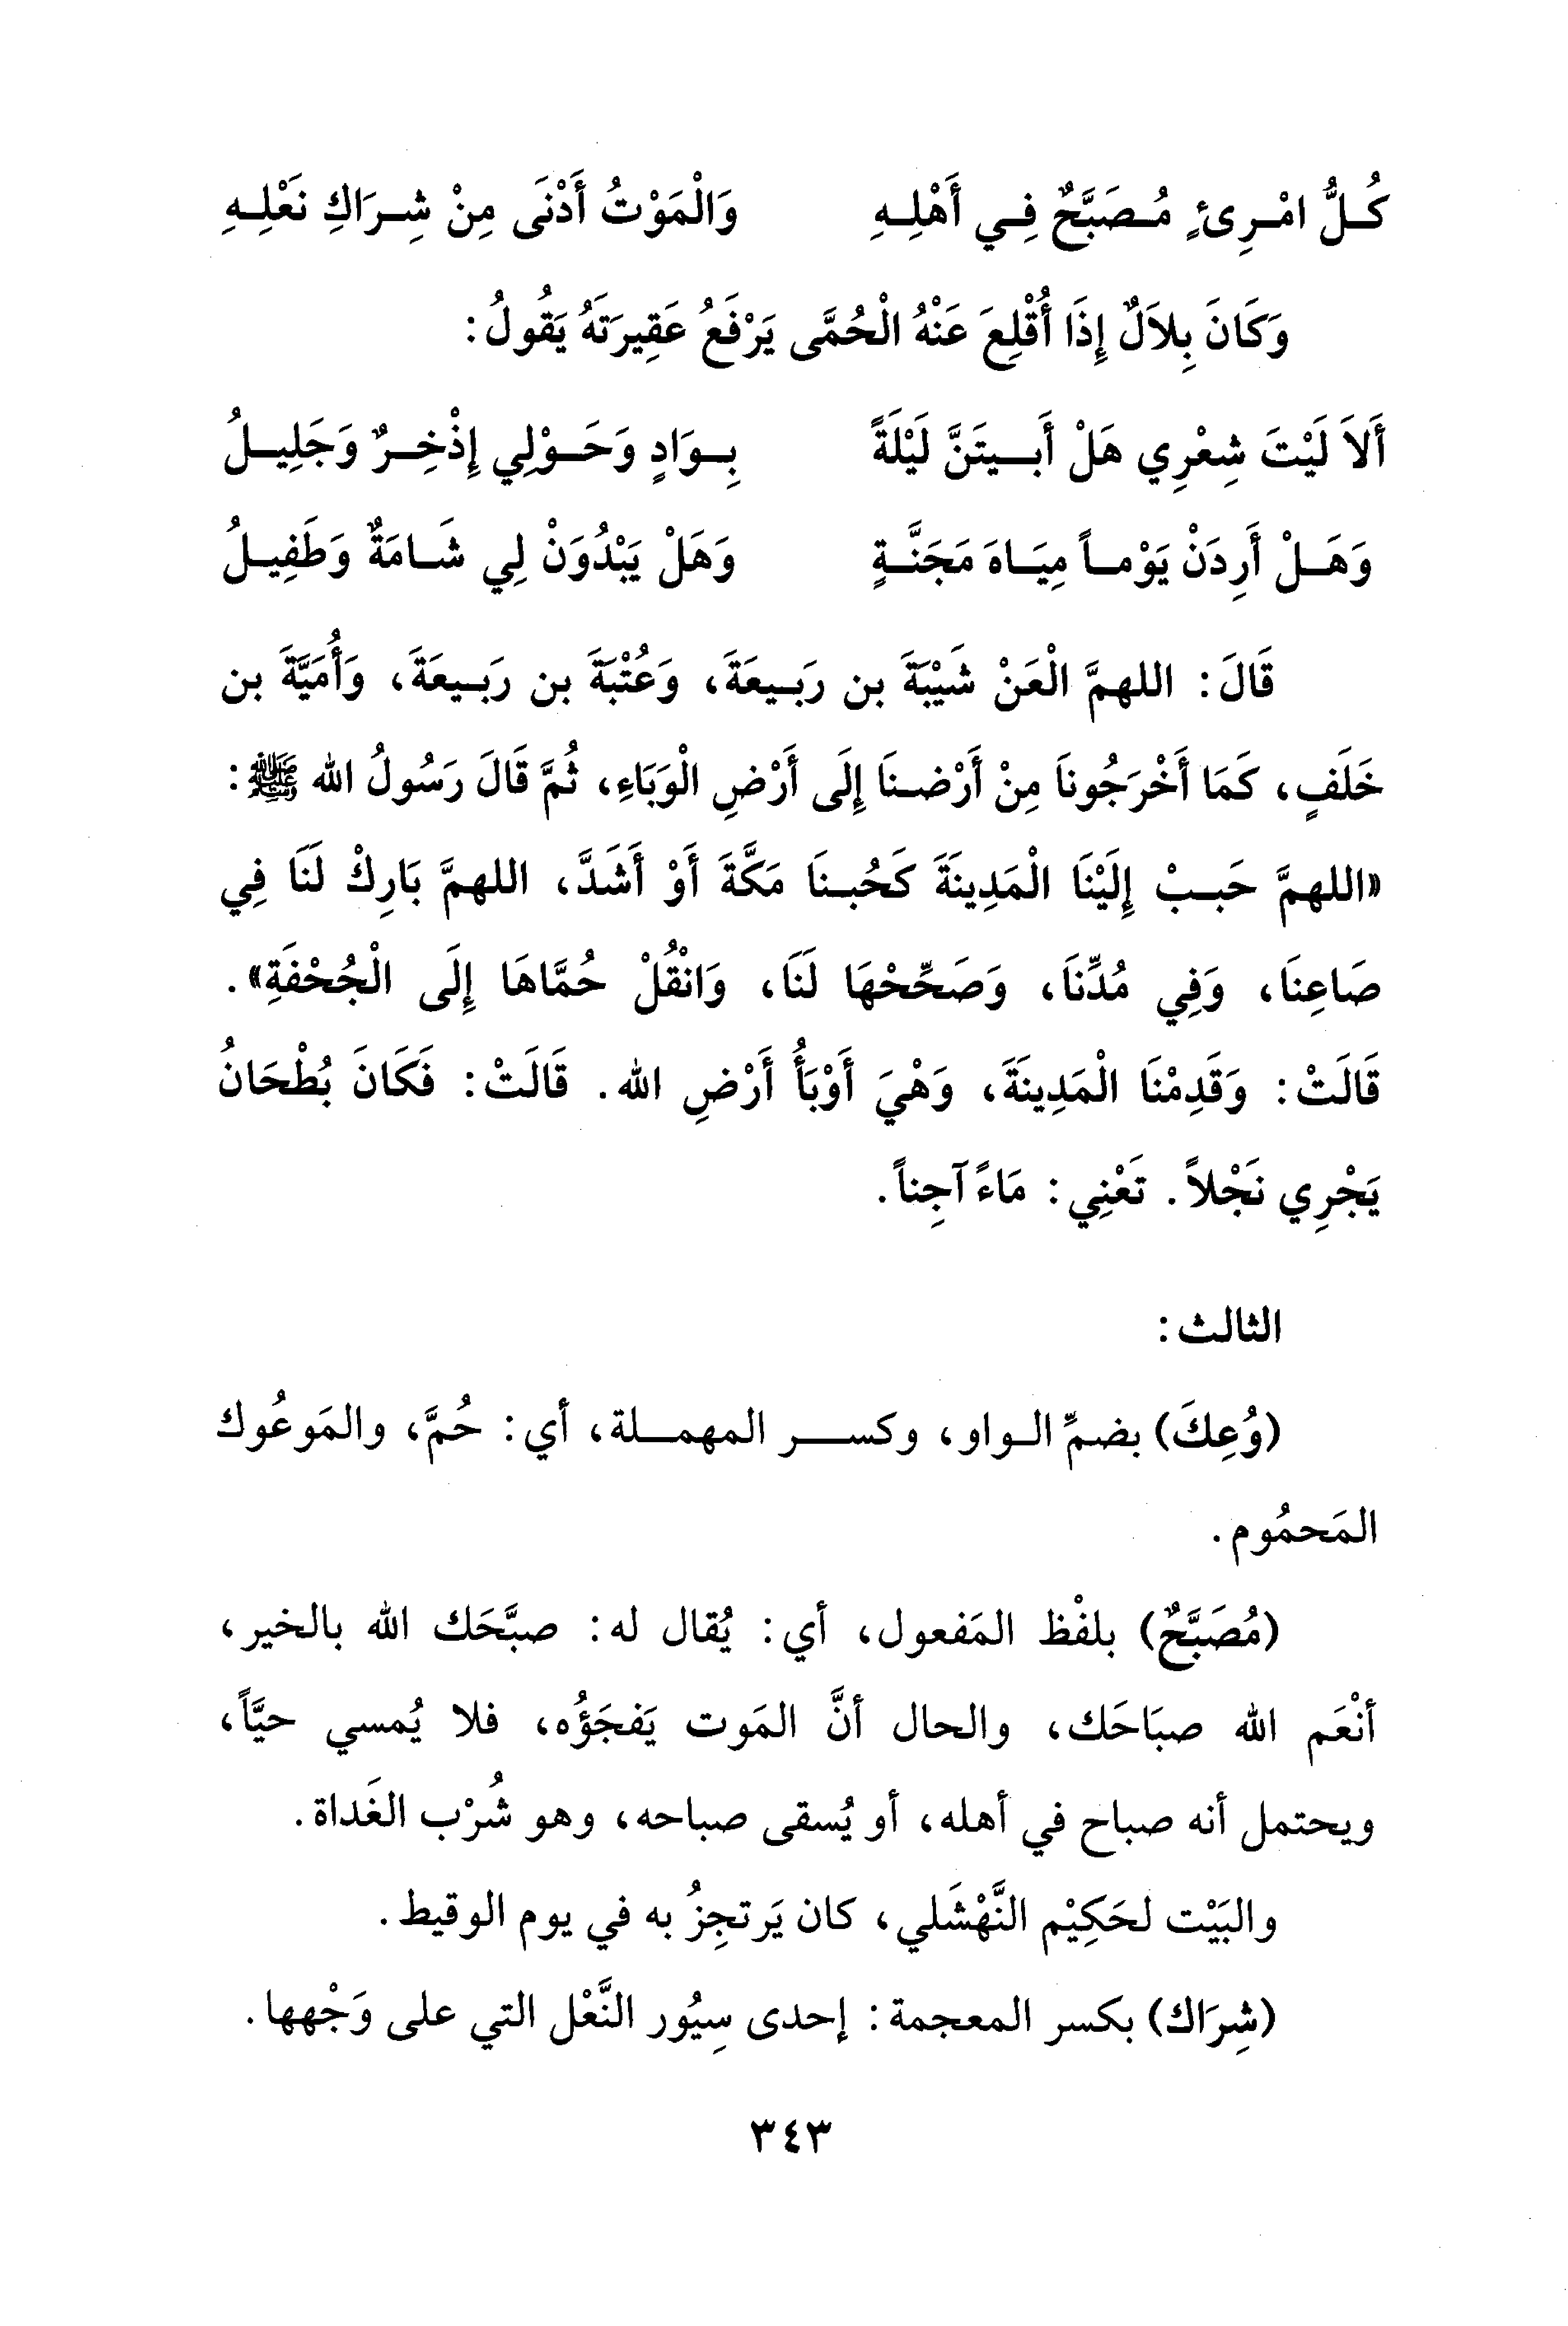 كُلُّ امْرِئٍ مُصَبَّحٌ فِي أَهْلِهِ وَالْمَوْتُ أَدْنَى مِنْ شِرَاكِ نَعْلِهِ
وَكَانَ بِلاَلٌ إِذَا أُقْلِعَ عَنْهُ الْحُمَّى يَرْفَعُ عَقِيرَتَهُ يَقُولُ:
أَلاَ لَيْتَ شِعْرِي هَلْ أَبِيتَنَّ لَيْلَةً بِوَادٍ وَحَوْلِي إِذْخِرٌ وَجَلِيلُ
وَهَلْ أَرِدَنْ يَوْماً مِيَاهَ مَجَنَّةٍ وَهَلْ يَبْدُوَنْ لِي شَامَةٌ وَطَفِيلُ
قَالَ: اللهمَّ الْعَنْ شَيْبَةَ بن رَبِيعَةَ، وَعُتْبَةَ بن رَبِيعَةَ، وَأُمَيَّةَ بن
خَلَفٍ، كَمَا أَخْرَجُوناَ مِنْ أَرْضِنَا إِلَى أَرْضِ الْوَبَاءِ، ثُمَّ قَالَ رَسُولُ الله ﷺ:
«اللهمَّ حَبِبْ إِلَيْنَا الْمَدِينَةَ كَحُبِنَا مَكَّةَ أَوْ أَشَدَّ، اللهمَّ بَارِكْ لَنَا فِي
صَاعِنَا، وَفِي مُدِّنَا، وَصَحِّحْهَا لَنَا، وَانْقُلْ حُمَّاهَا إِلَى الْجُحْفَةِ».
قَالَتْ: وَقَدِمْنَا الْمَدِينَةَ، وَهْيَ أَوْبَأُ أَرْضِ الله. قَالَتْ: فَكَانَ بُطْحَانُ
يَجْرِي نَجْلاً. تَعْنِي: مَاءً آجِناً.
الثالث:
(وُعِكَ) بضمِّ الواو، وكسر المهملة، أي: حُمَّ، والمَوعُوك
المَحمُوم.
(مُصَبَّحٌ) بلفْظ المَفعول، أي: يُقال له: صبَّحَك الله بالخير،
أنْعَم الله صبَاحَك، والحال أنَّ المَوت يَفجَؤُه، فلا يُمسي حيَّاً،
ويحتمل أنه صباح في أهله، أو يُسقى صباحه، وهو شُرْب الغَداة.
والبَيْت لحَكِيْم النَّهْشَلي، كان يَرتجِزُ به في يوم الوقيط.
(شِرَاك) بكسر المعجمة: إحدى سِيُور النَّعْل التي على وَجْهها.
٣٤٣